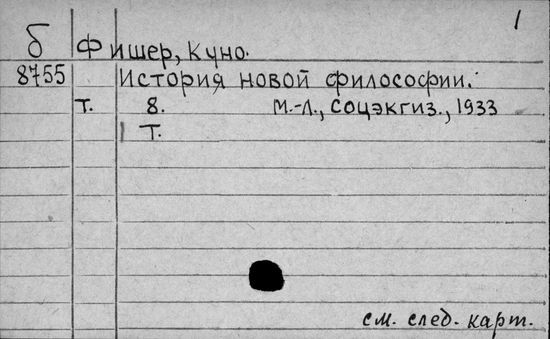 1
б Фишер, Куно.
8755 История новой философии.
Т. 8. М.-Л., Соцэкгиз., 1933
1 Т.
см. след. карт.